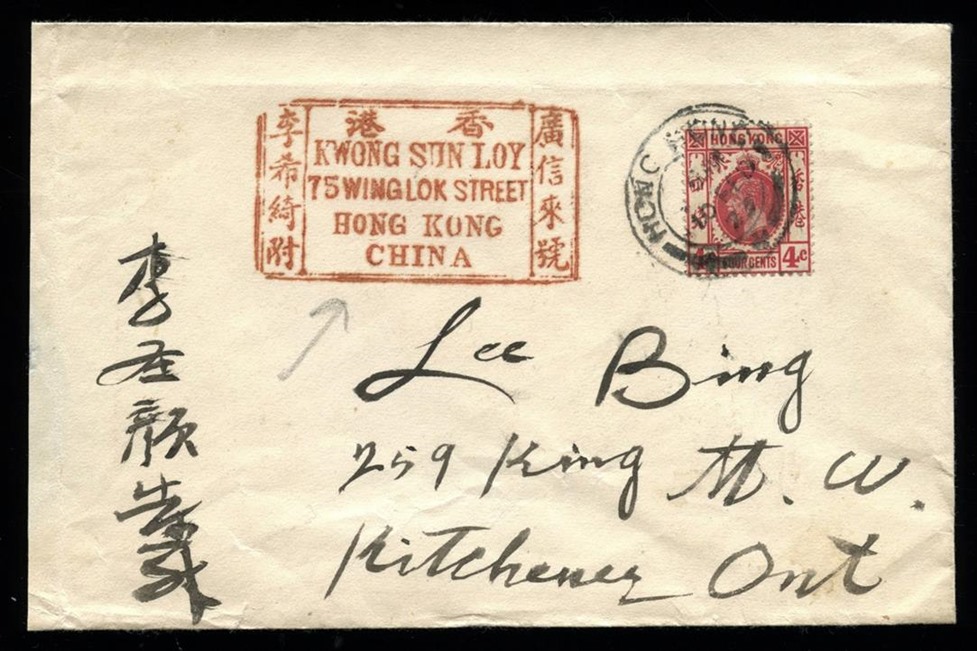 香港
KWONG SUN LOY
75 WING LOK STREET
HONG KONG
CHINA
廣信來號
李希綺附
HONG KONG
HONG KONG
FOUR CENTS 4c
Lee Bing
259 King St. W.
Kitchener Ont
李
顏